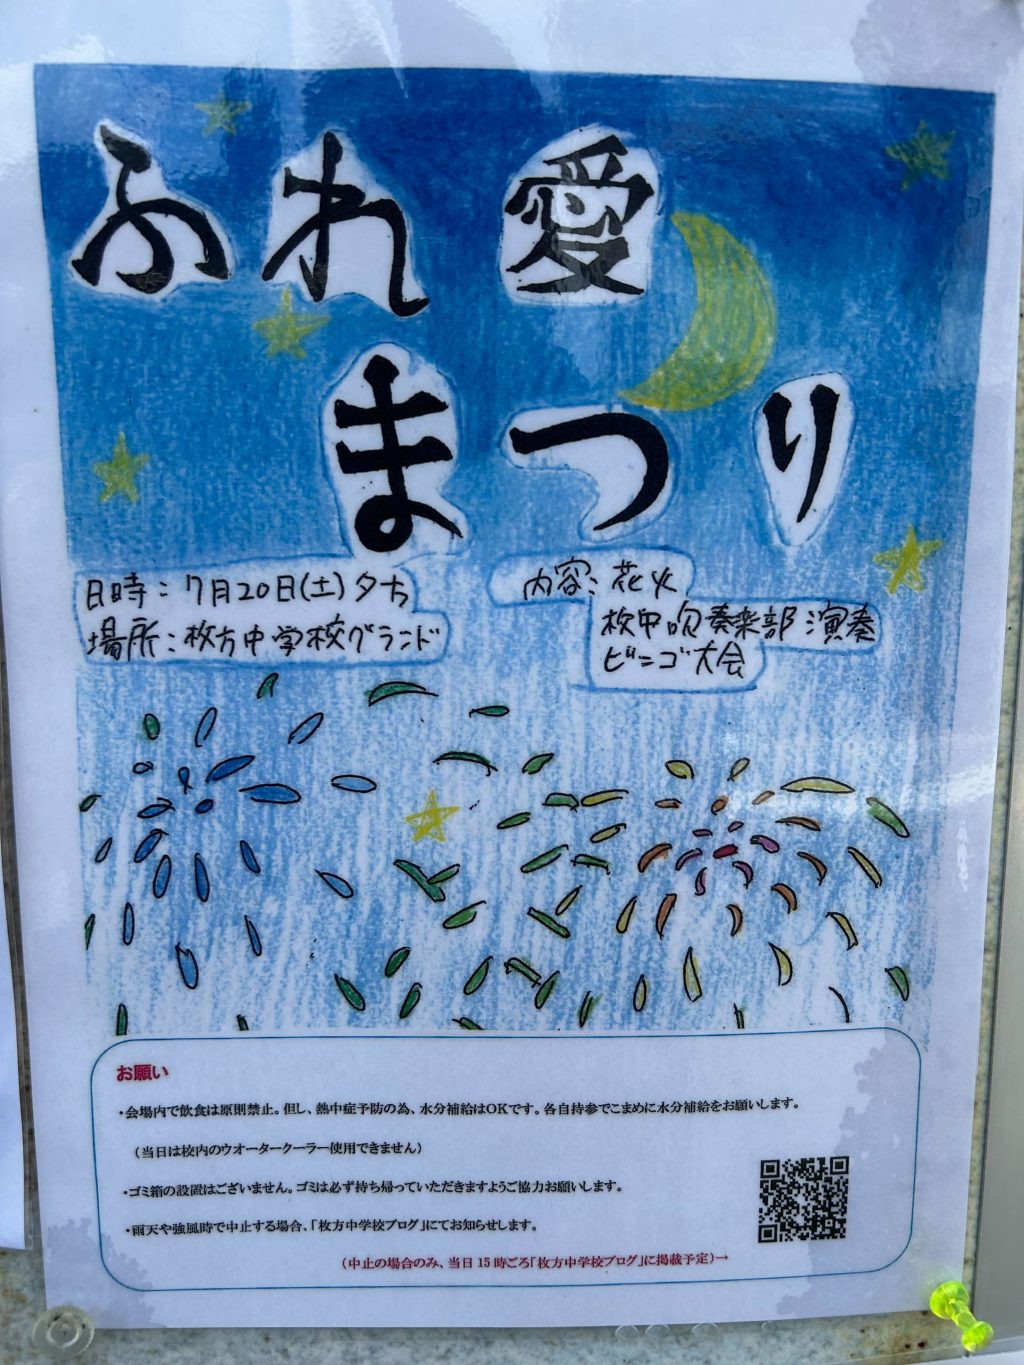 ふれ愛
まつり
日時：7月20日(土)夕方
場所：枚方中学校グランド
内容：花火
枚中吹奏楽部演奏
ビンゴ大会
お願い
・会場内で飲食は原則禁止。但し、熱中症予防の為、水分補給はOKです。各自持参でこまめに水分補給をお願いします。
（当日は校内のウオータークーラー使用できません）
・ゴミ箱の設置はございません。ゴミは必ず持ち帰っていただきますようご協力お願いします。
・雨天や強風時で中止する場合、「枚方中学校ブログ」にてお知らせします。
（中止の場合のみ、当日15時ごろ「枚方中学校ブログ」に掲載予定）→